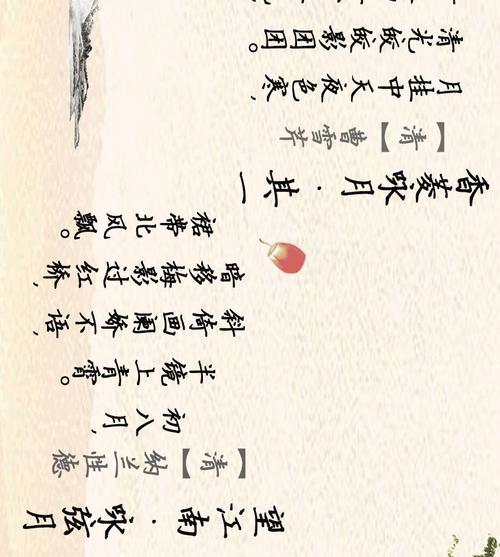 望江南·咏弦月
【清】纳兰性德
初八月,
半镜上青霄。
斜倚画阑娇不语,
暗移梅影过红桥,
裙带北风飘。
香菱咏月·其一
【清】曹雪芹
月挂中天夜色寒,
清光皎皎影团团。